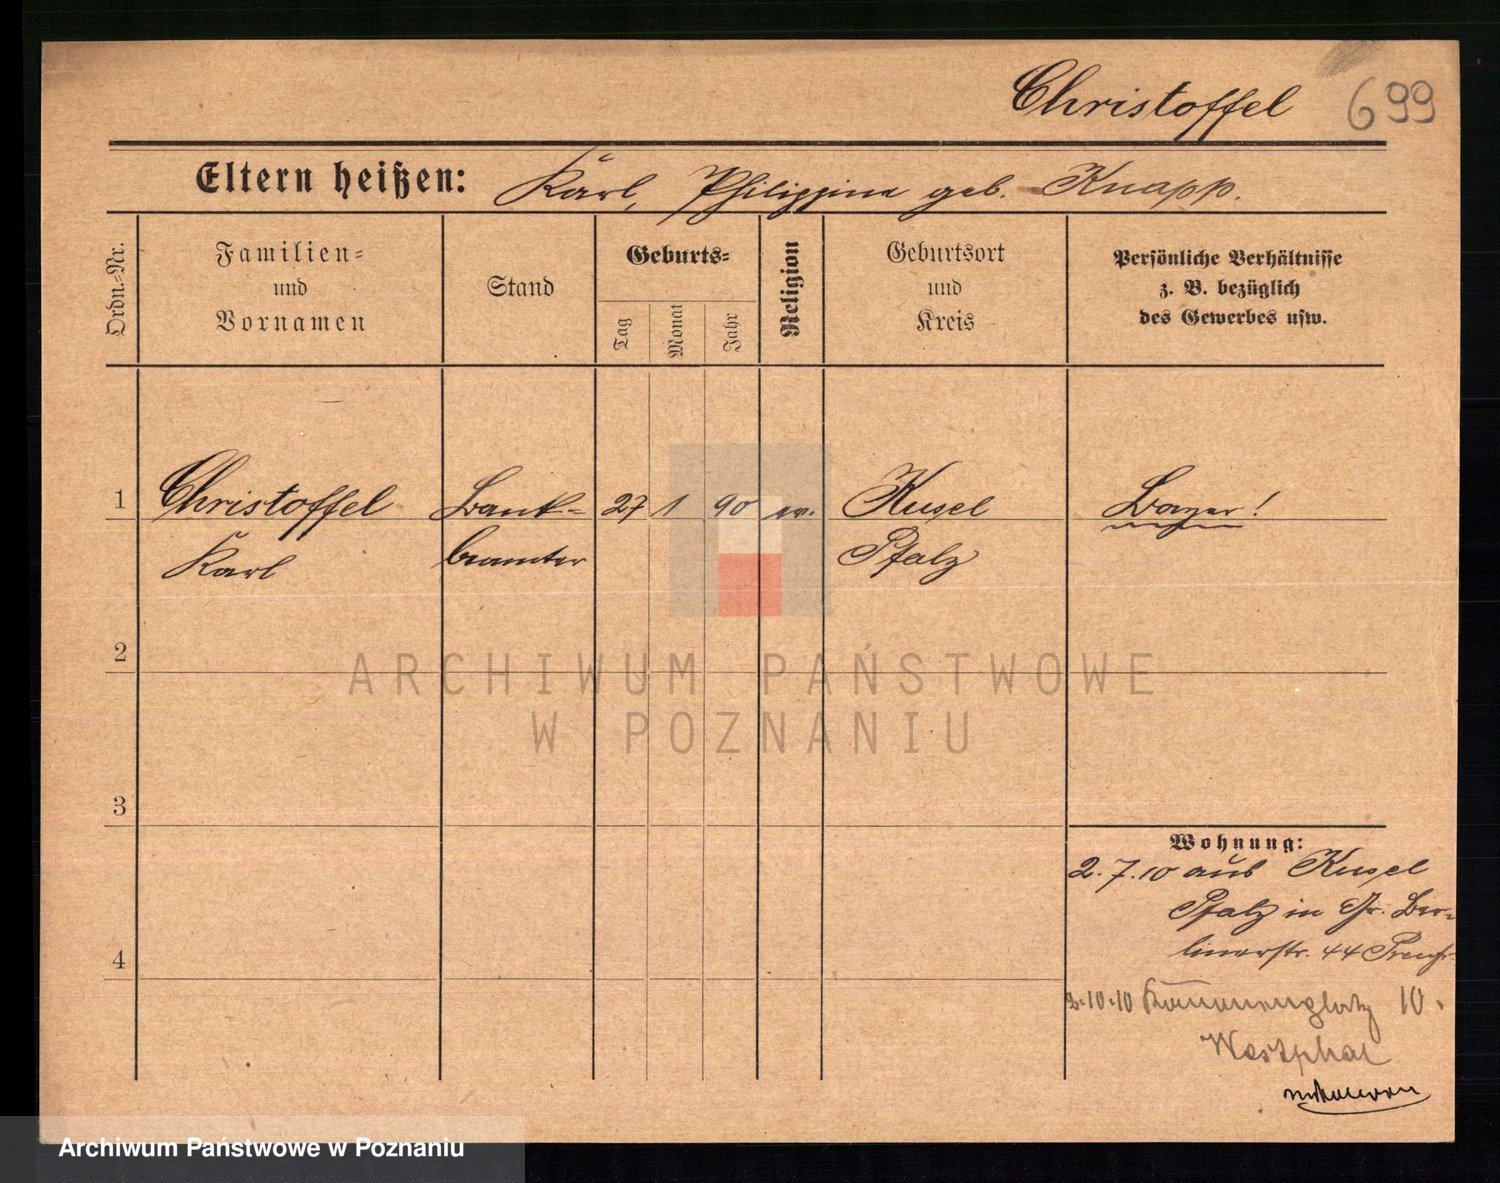 Christoffel 699
Eltern heißen: Karl, Philippine geb. Knapp.
Ordn.-Nr.
Familien-
und
Vornamen
Stand
Geburts-
Tag
Monat
Jahr
Religion
Geburtsort
und
Kreis
Persönliche Verhältnisse
z. B. bezüglich
des Gewerbes usw.
1 Christoffel Bank- 27 1 90 ev. Kusel Bayer!
Karl beamter Pfalz
2
3
4
Wohnung:
2.7.10 aus Kusel
Pfalz in Gr. Ber-
linerstr. 44
2.10.10 10.
Westphal
ARCHIWUM PAŃSTWOWE
W POZNANIU
Archiwum Państwowe w Poznaniu